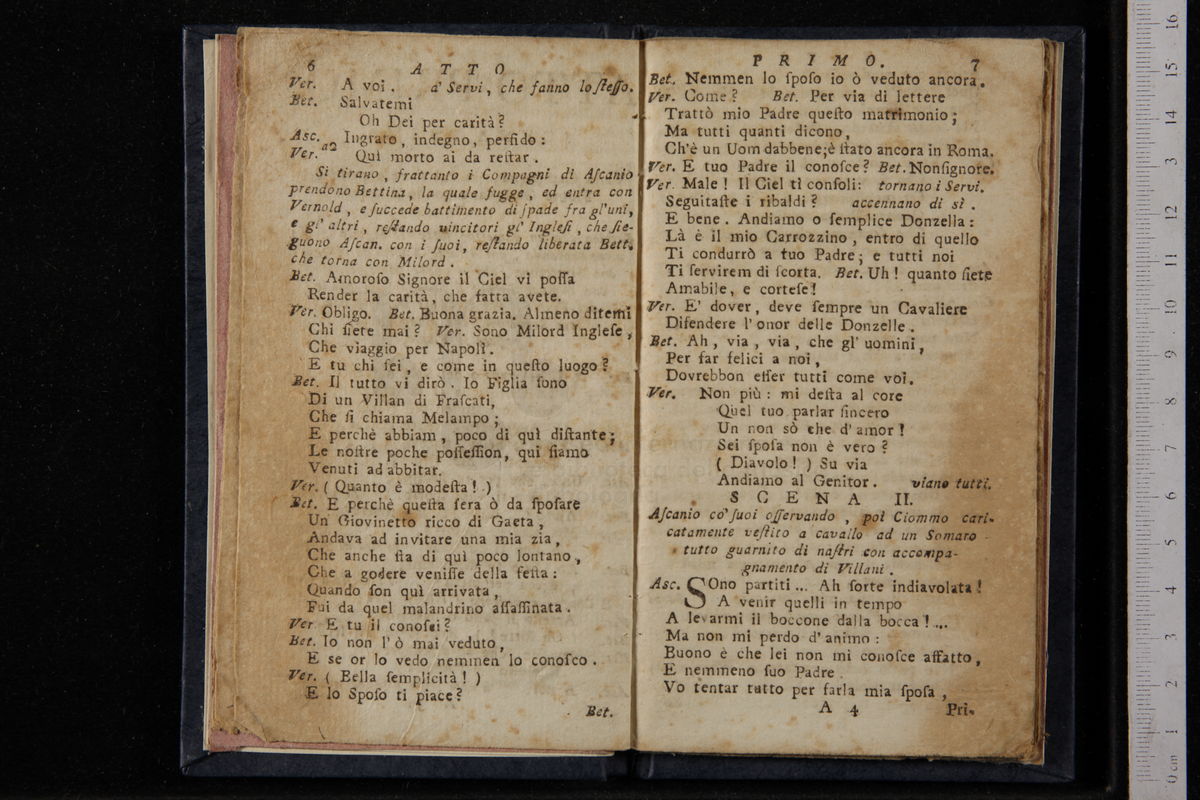 6 ATTO
Ver. A voi. a' Servi, che fanno lo ſteſſo.
Bet. Salvatemi
Oh Dei per carità?
Asc. Ingrato, indegno, perfido:
Ver. a2 Quì morto ai da reſtar.
Si tirano, frattanto i Compagni di Aſcanio
prendono Bettina, la quale fugge, ed entra con
Vernold, e ſuccede battimento di ſpade fra gl'uni,
e gl' altri, reſtando vincitori gl' Ingleſi, che ſie-
guono Aſcan. con i ſuoi, reſtando liberata Bett.
che torna con Milord.
Bet. Amoroſo Signore il Ciel vi poſſa
Render la carità, che fatta avete.
Ver. Obligo. Bet. Buona grazia. Almeno ditemi
Chi ſiete mai? Ver. Sono Milord Ingleſe,
Che viaggio per Napoli.
E tu chi ſei, e come in queſto luogo?
Bet. Il tutto vi dirò. Io Figlia ſono
Di un Villan di Fraſcati,
Che ſi chiama Melampo;
E perchè abbiam, poco di quì diſtante;
Le noſtre poche poſſeſſion, qui ſiamo
Venuti ad abbitar.
Ver. (Quanto è modeſta!)
Bet. E perchè queſta ſera ò da ſpoſare
Un Giovinetto ricco di Gaeta,
Andava ad invitare una mia zia,
Che anche ſta di quì poco lontano,
Che a godere veniſſe della feſta:
Quando ſon quì arrivata,
Fui da quel malandrino aſſaſſinata.
Ver. E tu il conoſci?
Bet. Io non l' ò mai veduto,
E se or lo vedo nemmen lo conoſco.
Ver. (Bella ſemplicità!)
E lo Spoſo ti piace?
Bet.
PRIMO. 7
Bet. Nemmen lo ſpoſo io ò veduto ancora.
Ver. Come? Bet. Per via di lettere
Trattò mio Padre queſto matrimonio;
Ma tutti quanti dicono,
Ch'è un Uom dabbene; è ſtato ancora in Roma.
Ver. E tuo Padre il conoſce? Bet. Nonſignore.
Ver. Male! Il Ciel ti conſoli: tornano i Servi.
Seguitaſte i ribaldi? accennano di sì.
E bene. Andiamo o ſemplice Donzella:
Là è il mio Carrozzino, entro di quello
Ti condurrò a tuo Padre; e tutti noi
Ti ſervirem di ſcorta. Bet. Uh! quanto ſiete
Amabile, e corteſe!
Ver. E' dover, deve ſempre un Cavaliere
Difendere l' onor delle Donzelle.
Bet. Ah, via, via, che gl' uomini,
Per far felici a noi,
Dovrebbon eſſer tutti come voi.
Ver. Non più: mi deſta al core
Quel tuo parlar ſincero
Un non sò che d' amor!
Sei ſpoſa non è vero?
(Diavolo!) Su via
Andiamo al Genitor. viano tutti.
SCENA II.
Aſcanio co' ſuoi oſſervando, poi Ciommo cari-
catamente veſtito a cavallo ad un Somaro
tutto guarnito di naſtri con accompa-
gnamento di Villani.
Asc. SOno partiti... Ah ſorte indiavolata!
A venir quelli in tempo
A levarmi il boccone dalla bocca!....
Ma non mi perdo d' animo:
Buono è che lei non mi conoſce affatto,
E nemmeno ſuo Padre.
Vo tentar tutto per farla mia ſpoſa,
A 4 Pri-
0 cm 1 2 3 4 5 6 7 8 9 10 11 12 3 14 15 16